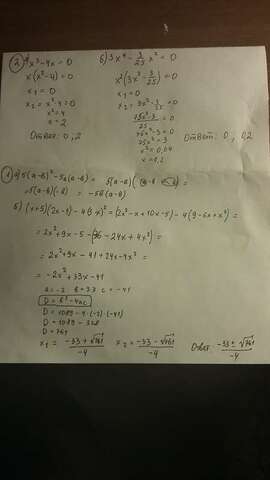 ② а) x³-4x=0
x(x²-4)=0
x₁=0
x₂=x²-4=0
x²=4
x=2
Ответ: 0, 2
б) 3x⁴-3/25 x²=0
x²(3x²-3/25)=0
x₁=0
x₂=3x²-3/25=0
75x²-3/25=0
75x²-3=0
75x²=3
x²=0,04
x=0,2
Ответ: 0, 0,2
① а) 5(a-b)²-5a(a-b)=5(a-b)(a-b-a)=
=5(a-b)(-b)=-5b(a-b)
б) (x+5)(2x-1)-4(3-x)²=(2x²-x+10x-5)-4(9-6x+x²)=
=2x²+9x-5-(36-24x+4x²)=
=2x²+9x-41+24x-4x²=
=-2x²+33x-41
a=-2 b=33 c=-41
D=b²-4ac
D=1089-4·(-2)·(-41)
D=1089-328
D=761
x₁=-33+√761/-4 x₂=-33-√761/-4 Ответ: -33±√761/-4